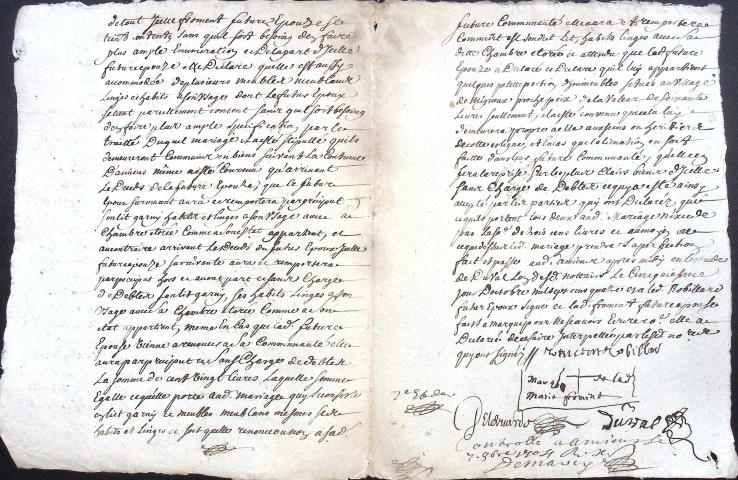 de tout Jcelle froment future Epouze se
tient contente sans quil soit besoing den faire
plus ample Enumeration et Delapart d'Jcelle
future epouze elle Declare quelle est aussy
accommodée de plusieurs meubles meublans
Linges et habits a son Usage dont Le futur Epoux
se tient pareillement content sans quil soit besoing
den faire plus ample specification, par Le
traitté Duquel mariage a esté stipullé quils
demeureront Communs en biens suivant La Coutume
D'amiens mesme a esté Convenu qu'arrivant
Le Deceds de La future Epouze que Le futur
Epoux survivant aura et remportera par preciput
son lit garny habits et Linges a son Usage avec sa
Chambre etorée Comme a son etat appartient, et
au contraire arrivant Le Deceds du futur Epoux Jcelle
future epouze survivante aura et remportera
par preciput hors et avant part et sans Charge
de Debtes son lit garny, ses habits Linges a son
Usage avec sa Chambre Etorée Comme a son
etat appartient, mesme En Cas que lad. future
Epouze Vienne a renoncer a sa Communauté elle
aura par preciput et sans Charge de debtes
La somme de cent Vingt Livres, Laquelle somme
Egalle ce quelle porte aud. mariage
son lit garny et meubles meublans mesmes ses
habits et Linges ce soit quelle renonce ou non a lad.
future Communauté elle aura et remportera
Comme il est son dit Lit habits Linges avec sa
ditte Chambre etorée et attendu que lad. future
Epouze a Declaré et Declare quil luy appartient
quelques petitte portion d'immeubles scitués au Village
de Mignaux proche poix de La Valeur de soixante
Livres seullement, a esté convenu que cela luy
demeurera propre a elle aux siens ou heritiers
de cotté et Ligne, et en cas que alienation en soit
faitte durant La future Communauté, quelle en
fera La reprise sur les plus Clairs biens d'Jcelle
sans Charge de Debtes ce qui a esté ainsy
accepté par Les parties qui ont Declaré que
ce quils portent tous deux aud. Mariage n'excede
pas La so. de trois cens Livres et au moyen de
ce que dessus led. mariage prendra sa perfection,
fait et passé aud. amiens apres midy en Letude
de DuVal Lun desd. nottaires Le Cinquiesme
Jour D'octobre mil sept cens quatre et a led. Robillare
futur Epoux signé et lad. froment future epouse
fait sa marque pour ne scavoir Ecrire ce quelle a
Declaré de ce faire Interpellée par lesd. no. res
qui ont signez // francois robillar
Marque de lad.
Marie froment
7e 8bre
Delouuardre
Duval
Controllé a amiens le
7. 8bre 1704 R. x s.
Demarcy